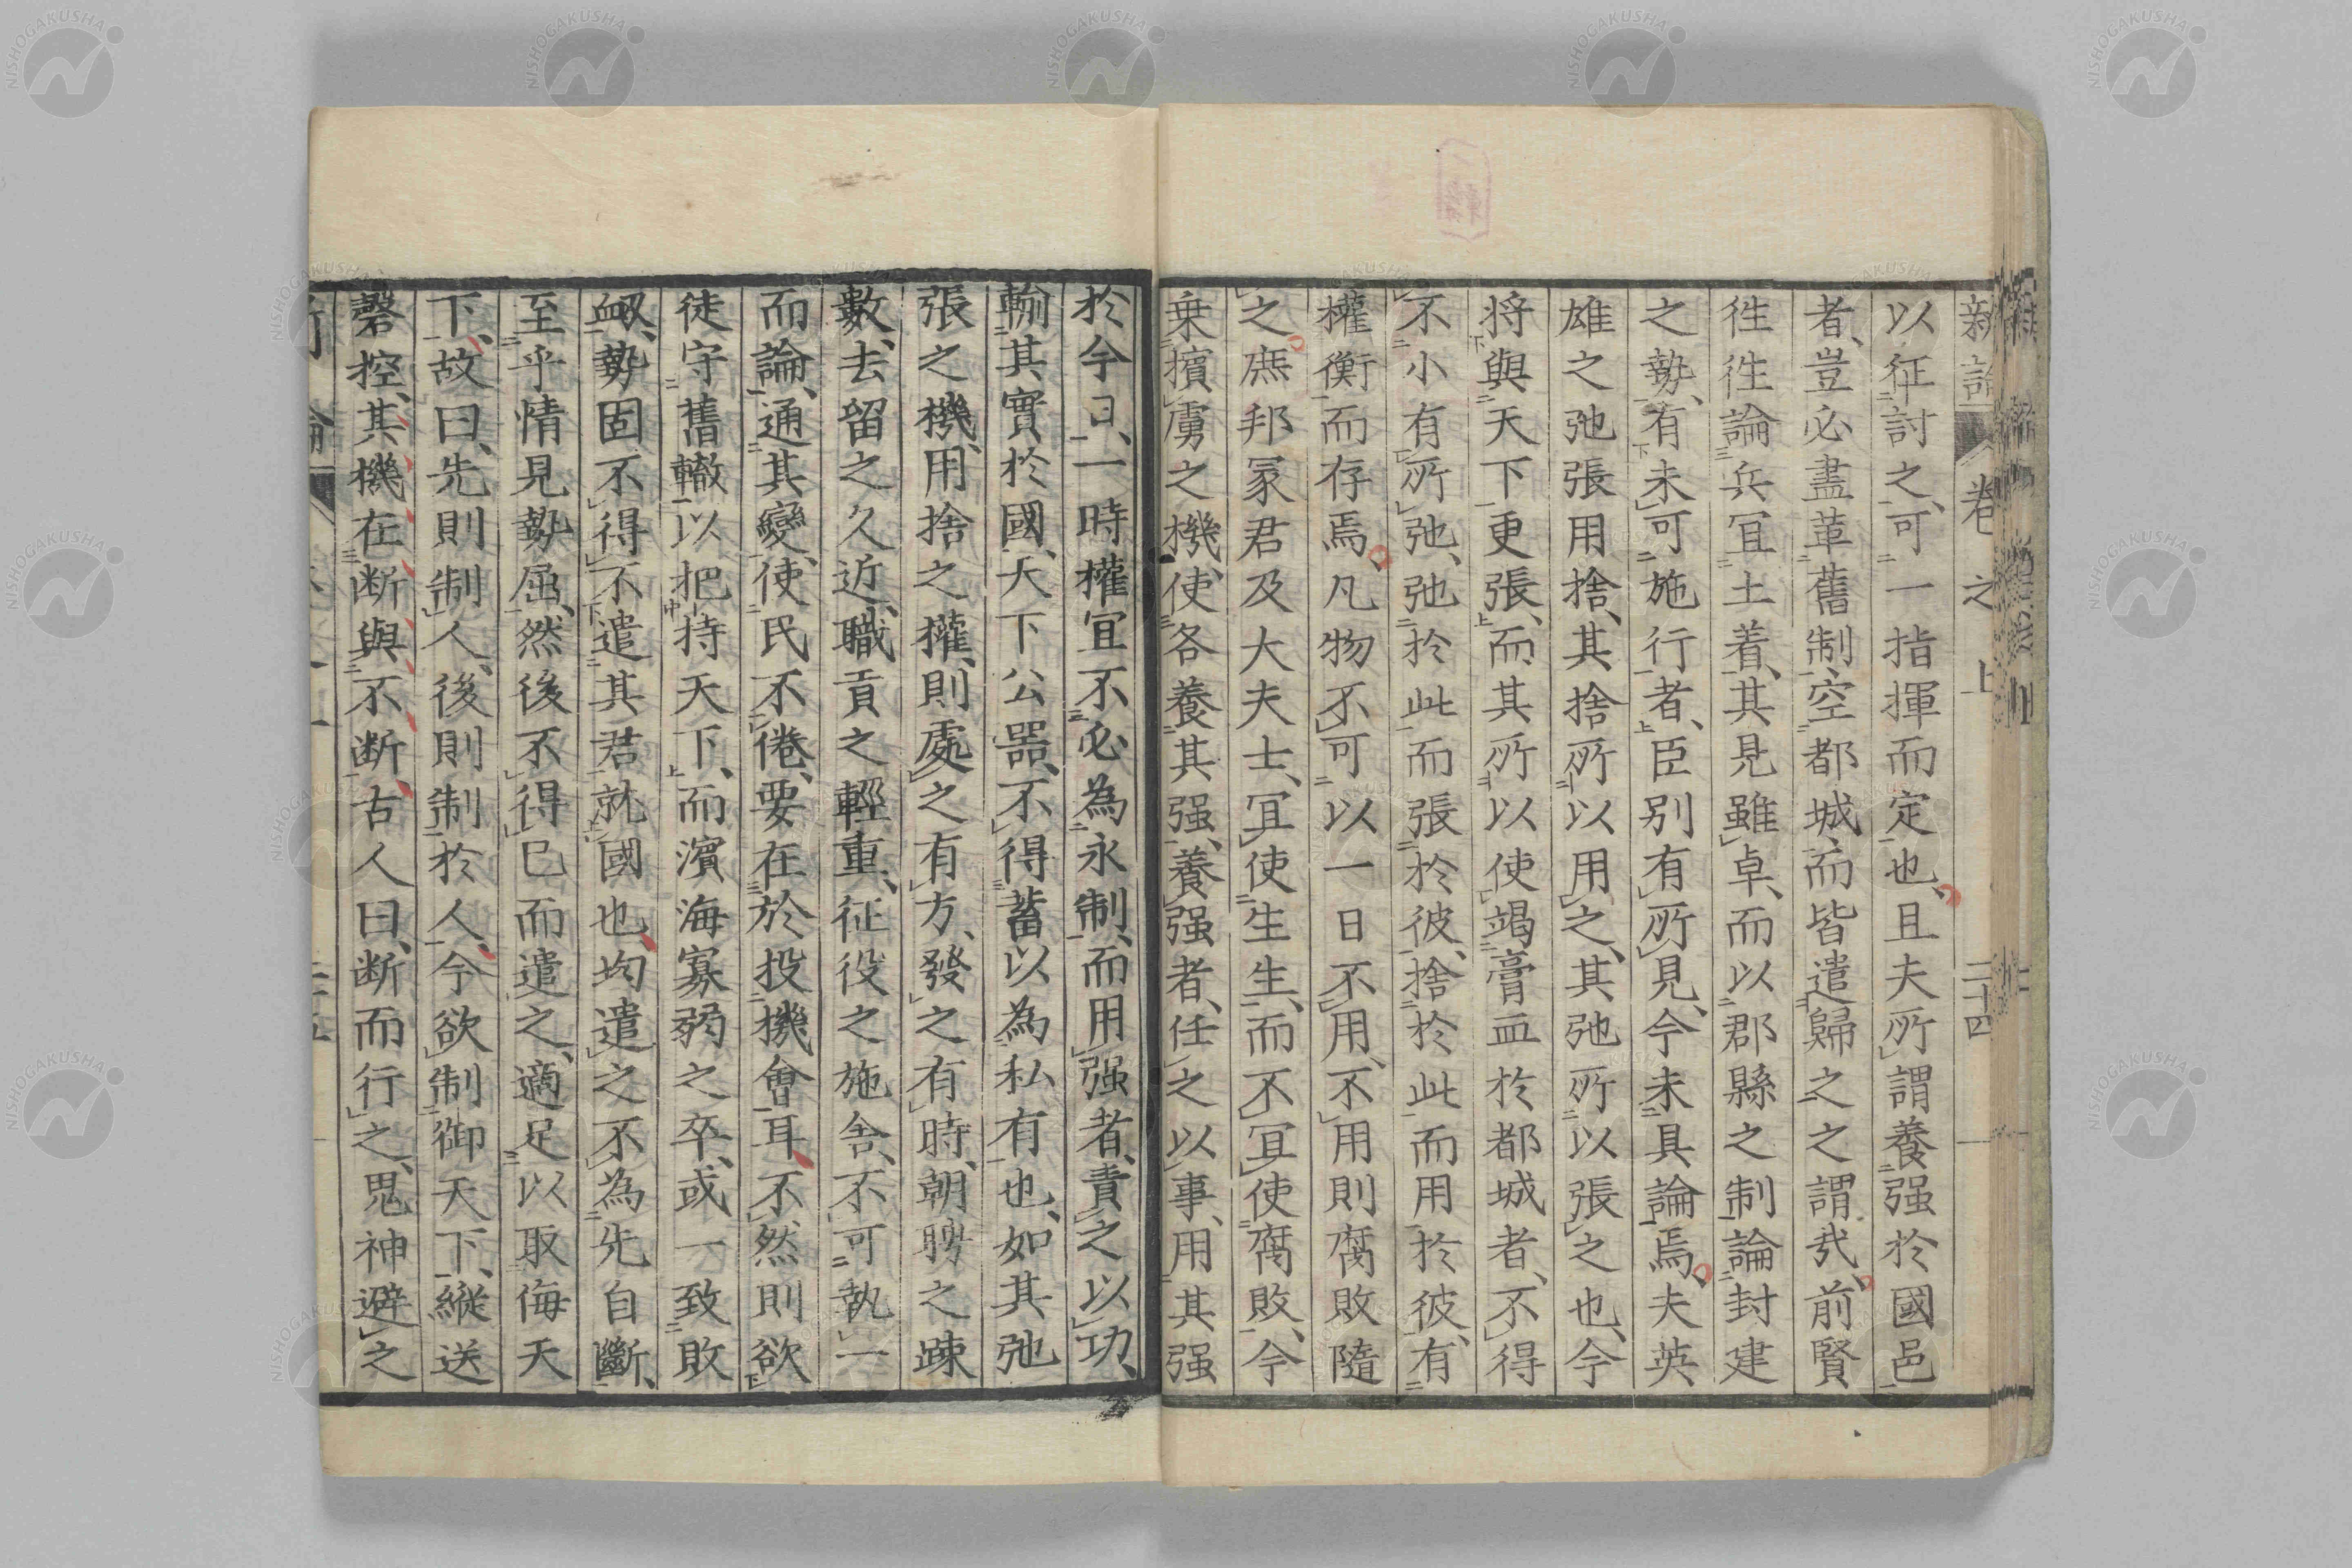 新論 卷之上 二十四
以征討之、可一指揮而定也、且夫所謂養强於國邑
者、豈必盡革舊制、空都城、而皆遣歸之之謂哉、前賢
徃徃論兵冝土着、其見雖卓、而以郡縣之制論封建
之勢、有未可施行者、臣別有所見、今未具論焉、夫英
雄之弛張用捨、其捨所以用之、其弛所以張之也、今
將與天下更張、而其所以使竭膏血於都城者、不得
不小有所弛、弛於此而張於彼、捨於此而用於彼、有
權衡而存焉、凡物不可以一日不用、不用則腐敗隨
之、庶邦冢君及大夫士、冝使生生、而不冝使腐敗、今
乗擯虜之機、使各養其强、養强者、任之以事、用其强
於今日、一時權冝不必為永制、而用强者、責之以功、
輸其實於國、天下公器、不得蓄以為私有也、如其弛
張之機、用捨之權、則處之有方、發之有時、朝聘之疎
數、去留之久近、職貢之輕重、征役之施舍、不可執一
而論、通其變、使民不倦、要在於投機會耳、不然則欲
徒守舊轍以把持天下、而濱海寡弱之卒、或一致敗
衂、勢固不得不遣其君就國也、均遣之不為先自斷、
至乎情見勢屈、然後不得已而遣之、適足以取侮天
下、故曰、先則制人、後則制於人、今欲制御天下、縱送
磬控、其機在断與不断、古人曰、断而行之、鬼神避之